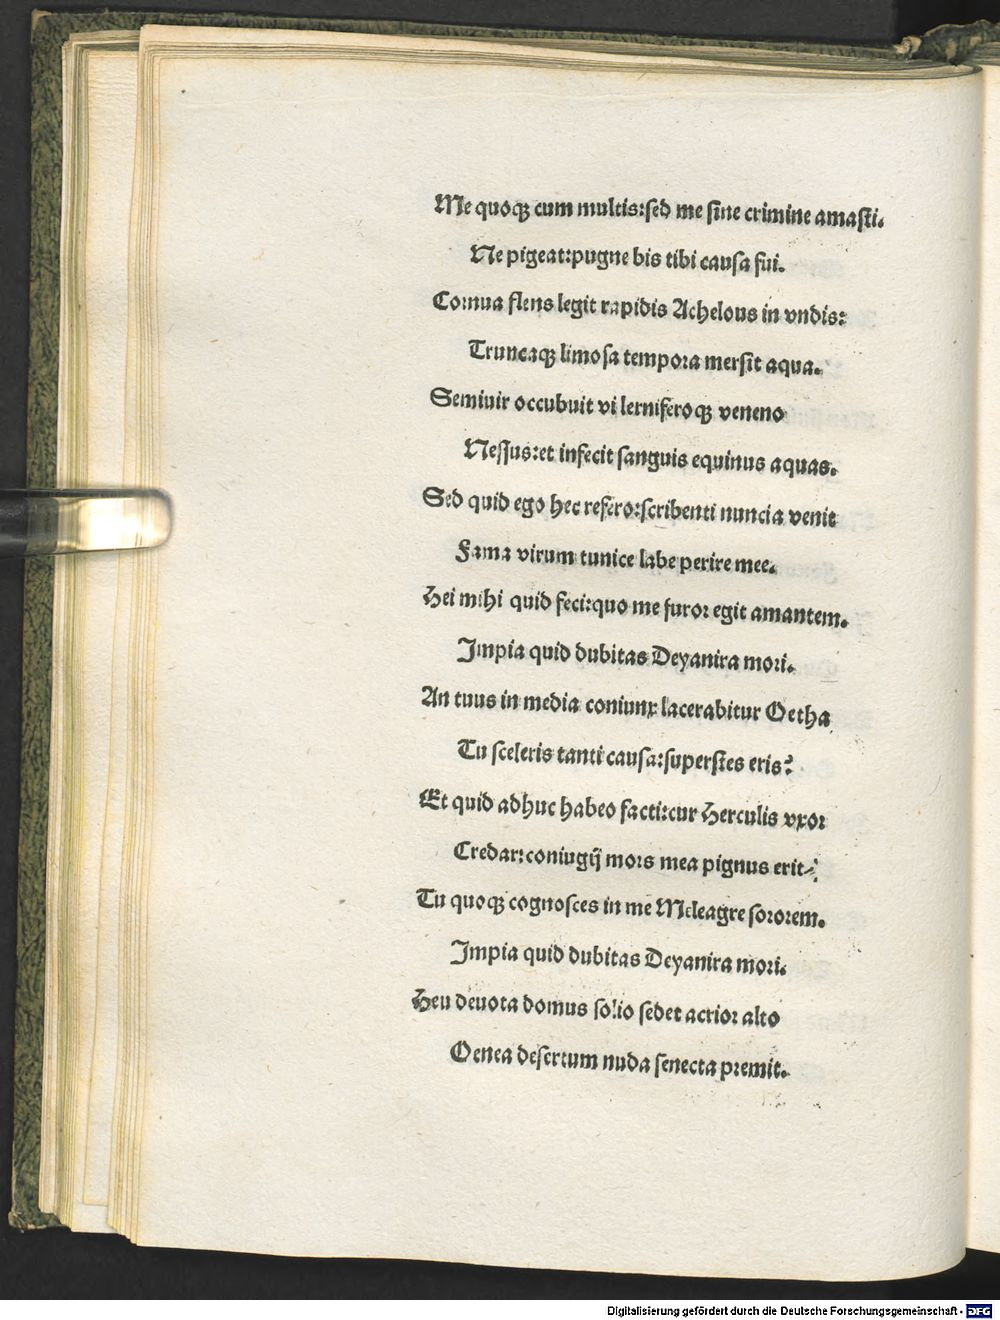 Me quoqꝫ cum multis:sed me sine crimine amasti.
Ne pigeat:pugne bis tibi causa fui.
Cornua flens legit rapidis Achelous in vndis:
Truncaqꝫ limosa tempora mersit aqua.
Semiuir occubuit vi lerniferoqꝫ veneno
Nessus:et infecit sanguis equinus aquas.
Sed quid ego hec refero:scribenti nuncia venit
Fama virum tunice labe perire mee.
Hei mihi quid feci:quo me furor egit amantem.
Impia quid dubitas Deyanira mori.
An tuus in media coniunx lacerabitur Oetha
Tu sceleris tanti causa:superstes eris?
Et quid adhuc habeo facti:cur Herculis vxor
Credar:coniugij mors mea pignus erit?
Tu quoqꝫ cognosces in me Meleagre sororem.
Impia quid dubitas Deyanira mori.
Heu deuota domus solio sedet acrior alto
Oenea desertum nuda senecta premit.
Digitalisierung gefördert durch die Deutsche Forschungsgemeinschaft - DFG